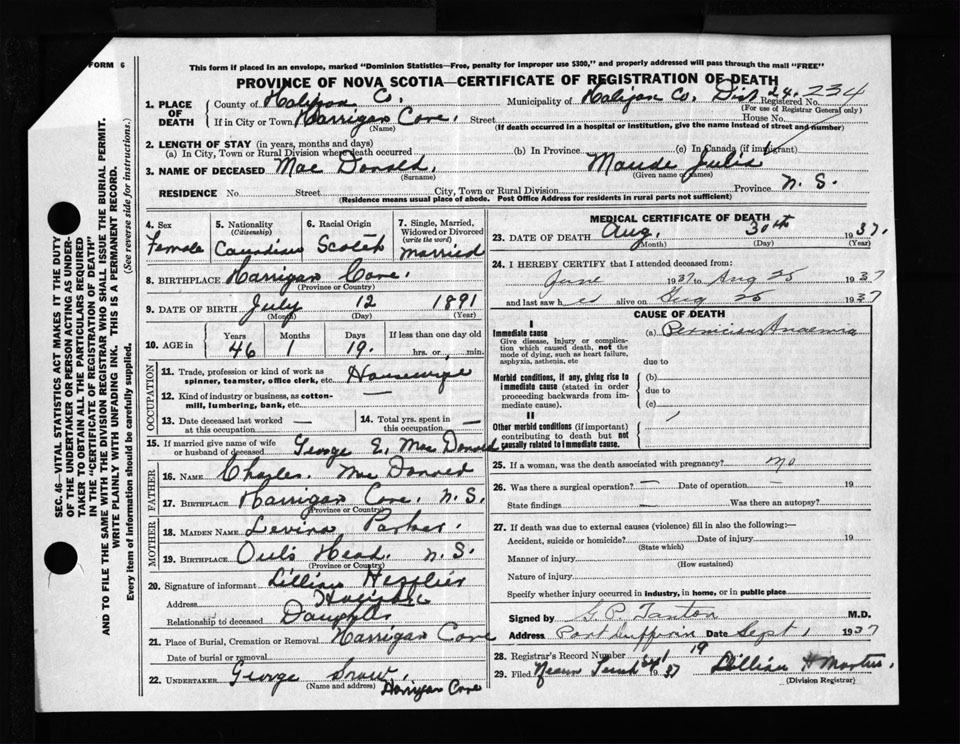 FORM 6
This form if placed in an envelope, marked "Dominion Statistics—Free, penalty for improper use $300," and properly addressed will pass through the mail "FREE"
PROVINCE OF NOVA SCOTIA—CERTIFICATE OF REGISTRATION OF DEATH
1. PLACE OF DEATH
County of Halifax Co. Municipality of Halifax Co. Dist 24. Registered No. 234
(For use of Registrar General only)
If in City or Town Harrigan Cove. Street House No.
(Name) (If death occurred in a hospital or institution, give the name instead of street and number)
2. LENGTH OF STAY (in years, months and days)
(a) In City, Town or Rural Division where death occurred (b) In Province (c) In Canada (if immigrant)
3. NAME OF DECEASED Mac Donald. Maude Julia
(Surname) (Given name or names)
RESIDENCE No Street City, Town or Rural Division Province N. S.
(Residence means usual place of abode. Post Office Address for residents in rural parts not sufficient)
4. Sex Female
5. Nationality (Citizenship) Canadian
6. Racial Origin Scotch
7. Single, Married, Widowed or Divorced (write the word) Married
8. BIRTHPLACE Harrigan Cove.
(Province or Country)
9. DATE OF BIRTH July 12 1891
(Month) (Day) (Year)
10. AGE in Years 46 Months 1 Days 19. If less than one day old hrs. or min.
OCCUPATION
11. Trade, profession or kind of work as spinner, teamster, office clerk, etc. Housewife
12. Kind of industry or business, as cotton-mill, lumbering, bank, etc. —
13. Date deceased last worked at this occupation. —
14. Total yrs. spent in this occupation. —
15. If married give name of wife or husband of deceased George E. Mac Donald
FATHER
16. NAME Charles Mac Donald
17. BIRTHPLACE Harrigan Cove, N. S.
(Province or Country)
MOTHER
18. MAIDEN NAME Levina Parker.
19. BIRTHPLACE Owls Head. N. S.
(Province or Country)
20. Signature of informant Lillian
Address
Relationship to deceased Daughter
21. Place of Burial, Cremation or Removal Harrigan Cove
Date of burial or removal
22. UNDERTAKER George Snow,
(Name and address) Harrigan Cove
MEDICAL CERTIFICATE OF DEATH
23. DATE OF DEATH Aug. 30th 1937.
(Month) (Day) (Year)
24. I HEREBY CERTIFY that I attended deceased from:
June 1937 to Aug 25 1937
and last saw her alive on Aug 25 1937
CAUSE OF DEATH
I
Immediate cause (a) Pernicious Anaemia
Give disease, injury or complication which caused death, not the mode of dying, such as heart failure, asphyxia, asthenia, etc
due to
Morbid conditions, if any, giving rise to immediate cause (stated in order proceeding backwards from immediate cause).
(b)
due to
(c)
II
Other morbid conditions (if important) contributing to death but not causally related to immediate cause.
25. If a woman, was the death associated with pregnancy? no
26. Was there a surgical operation? — Date of operation — 19
State findings — Was there an autopsy?
27. If death was due to external causes (violence) fill in also the following:—
Accident, suicide or homicide? Date of injury 19
(State which)
Manner of injury
(How sustained)
Nature of injury
Specify whether injury occurred in industry, in home, or in public place
Signed by G. P. Tanton M.D.
Address Port Dufferin Date Sept 1 1937
28. Registrar's Record Number 19
29. Filed 1937 Lillian H
(Division Registrar)
SEC. 46—VITAL STATISTICS ACT MAKES IT THE DUTY
OF THE UNDERTAKER OR PERSON ACTING AS UNDER-
TAKER TO OBTAIN ALL THE PARTICULARS REQUIRED
IN THE "CERTIFICATE OF REGISTRATION OF DEATH"
AND TO FILE THE SAME WITH THE DIVISION REGISTRAR WHO SHALL ISSUE THE BURIAL PERMIT.
WRITE PLAINLY WITH UNFADING INK. THIS IS A PERMANENT RECORD.
Every item of information should be carefully supplied. (See reverse side for instructions.)